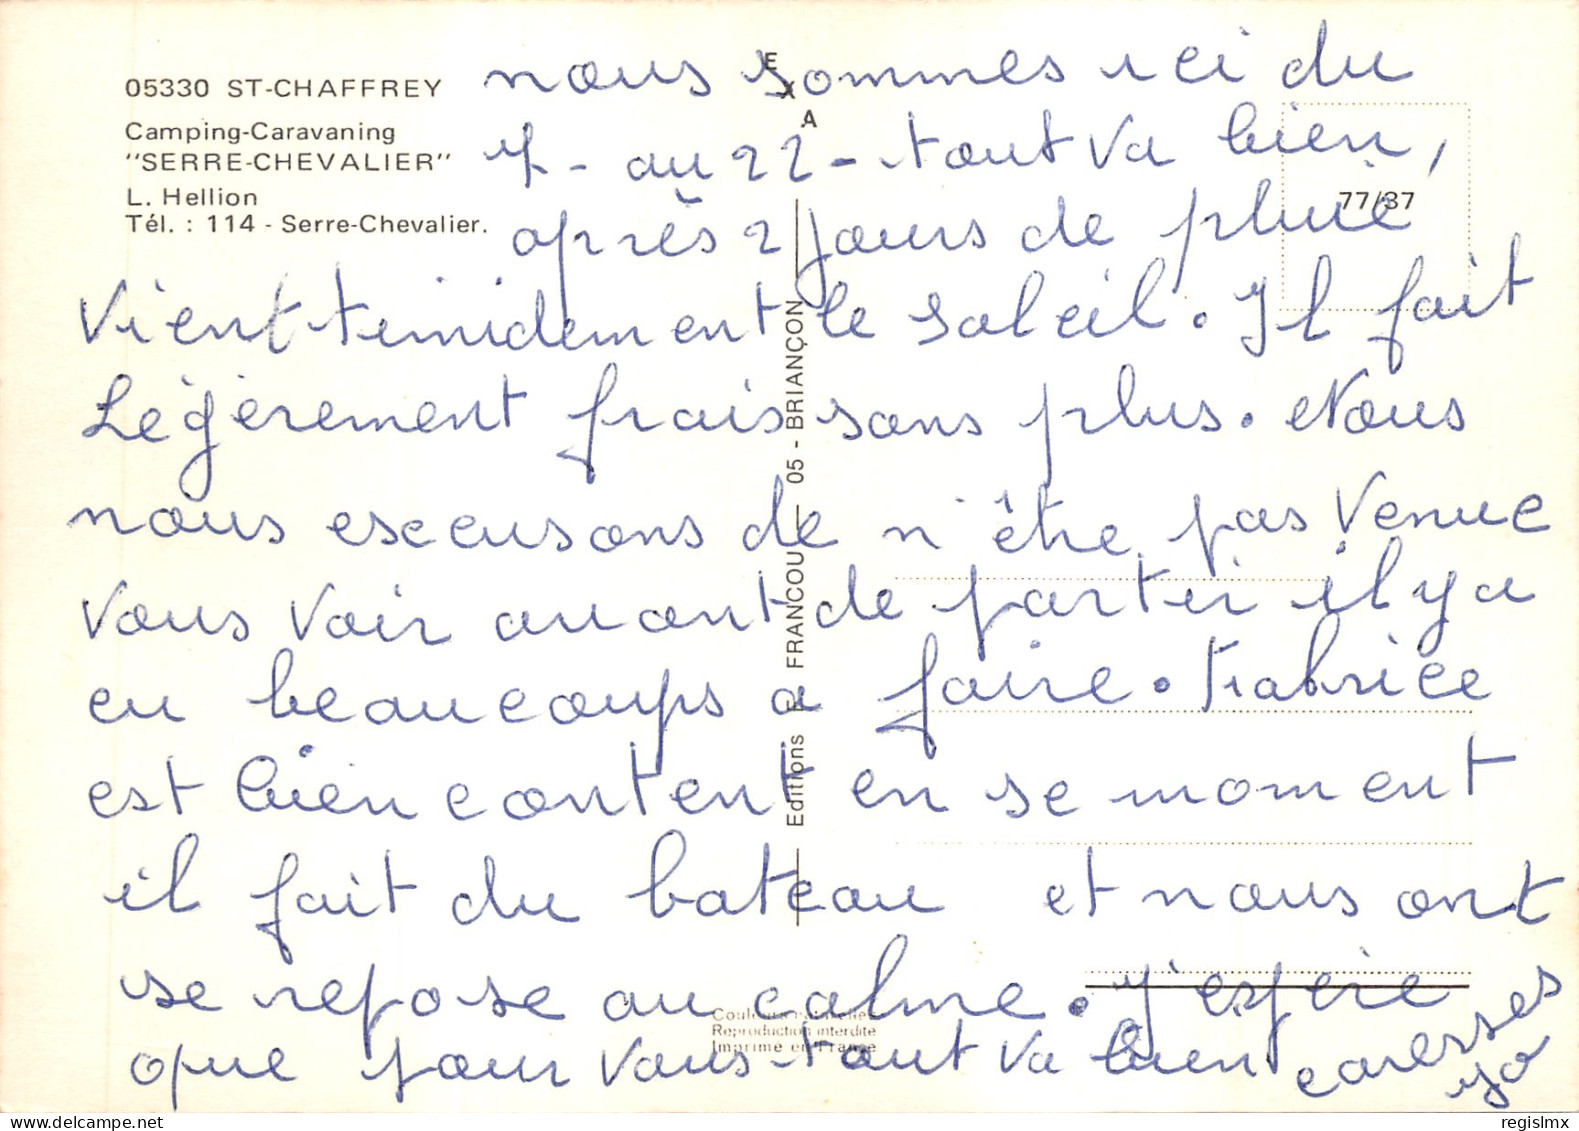 05330 ST-CHAFFREY
Camping-Caravaning
"SERRE-CHEVALIER"
L. Hellion
Tél. : 114 - Serre-Chevalier.
EXA
77/37
nous sommes ici du
7 - au 22 - tout va bien,
après 2 jours de pluie
vient timidement le soleil. Il fait
Légèrement frais sans plus. Nous
nous escusons de n'être pas venue
vous voir avant de partir il y a
eu beaucoups a faire. Fabrice
est bien content en se moment
il fait du bateau et nous ont
se repose au calme. J'espère
que pour vous tout va bien caresses
yo
Editions F. FRANCOU - 05 - BRIANÇON
Reproduction interdite
Imprimé en France
regislmx